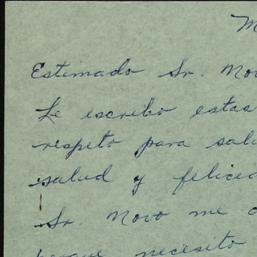 M
Estimado Sr. Novo
Le escribo estas
respeto para salu
salud y felicid
Sr. Novo me d
porque necesito